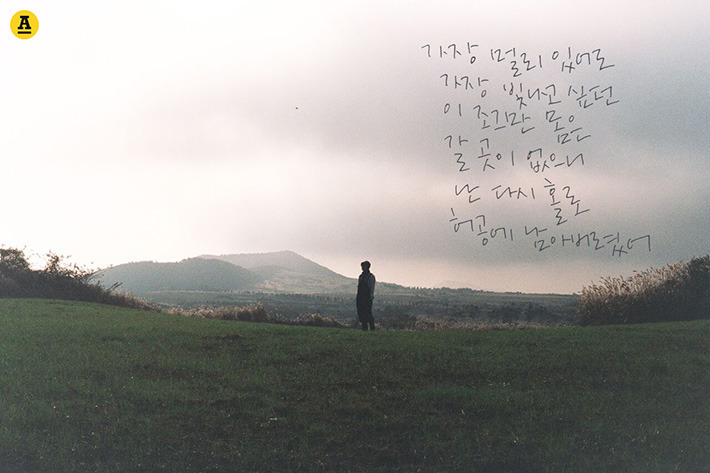 A
가장 멀리 있어도
가장 빛나고 싶던
이 조그만 몸은
갈 곳이 없으니
난 다시 홀로
허공에 남아버렸어